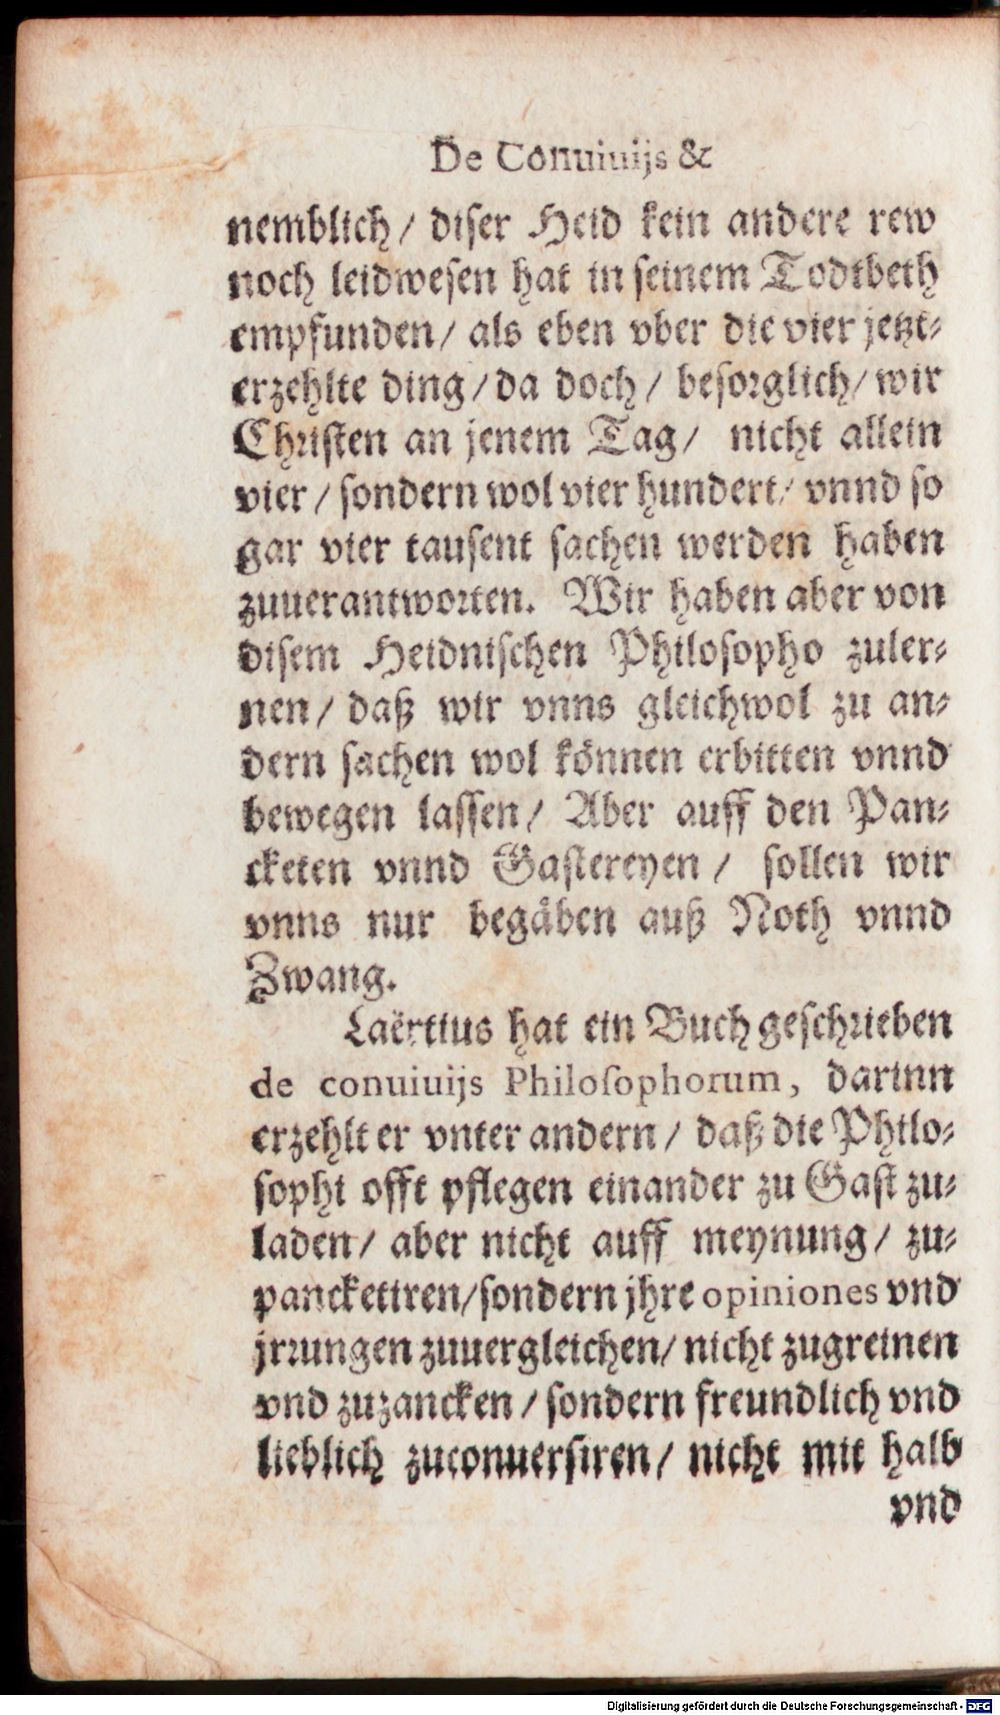 De Conuiuijs &
nemblich / diser Heid kein andere rew
noch leidwesen hat in seinem Todtbeth
empfunden / als eben vber die vier jetzt-
erzehlte ding / da doch / besorglich / wir
Christen an jenem Tag / nicht allein
vier / sondern wol vier hundert / vnnd so
gar vier tausent sachen werden haben
zuuerantworten. Wir haben aber von
disem Heidnischen Philosopho zuler-
nen / daß wir vnns gleichwol zu an-
dern sachen wol können erbitten vnnd
bewegen lassen / Aber auff den Pan-
cketen vnnd Gastereyen / sollen wir
vnns nur begäben auß Noth vnnd
Zwang.
Laërtius hat ein Buch geschrieben
de conuiuijs Philoſophorum, darinn
erzehlt er vnter andern / daß die Philo-
sophi offt pflegen einander zu Gast zu-
laden / aber nicht auff meynung / zu-
panckettiren / sondern jhre opiniones vnd
jrrungen zuuergleichen / nicht zugreinen
vnd zuzancken / sondern freundlich vnd
lieblich zuconuersiren / nicht mit halb
vnd
Digitalisierung gefördert durch die Deutsche Forschungsgemeinschaft - DFG